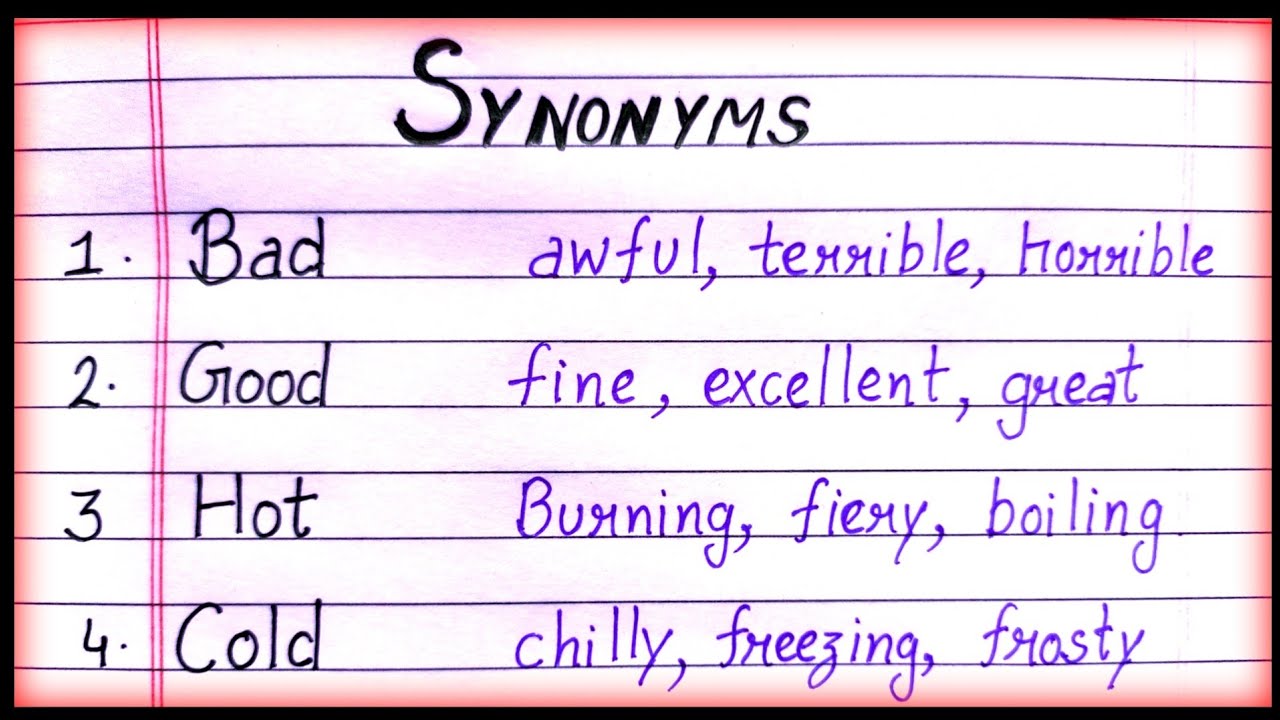 SYNONYMS
1. Bad awful, terrible, horrible
2. Good fine, excellent, great
3 Hot Burning, fiery, boiling
4. Cold chilly, freezing, frosty